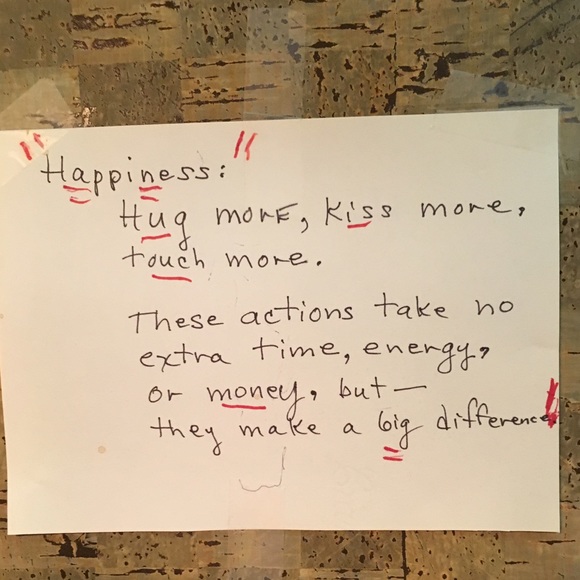 "Happiness:"
Hug more, kiss more,
touch more.
These actions take no
extra time, energy,
or money, but—
they make a big difference!